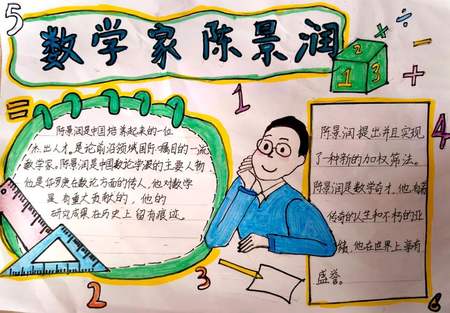 5
数学家陈景润
2
1 3
1
陈景润是中国培养起来的一位
杰出人才。是论前沿领域国际瞩目的一流
数学家。陈景润是中国数论学派的主要人物
他是华罗庚在数论方面的传人，他对数学
是有重大贡献的，他的
研究成果在历史上留有痕迹。
4
陈景润提出并且实现
了一种新的加权筛法。
陈景润是数学奇才，他有着
传奇的人生和不朽的业
绩，他在世界上享有
盛誉。
2
3
6